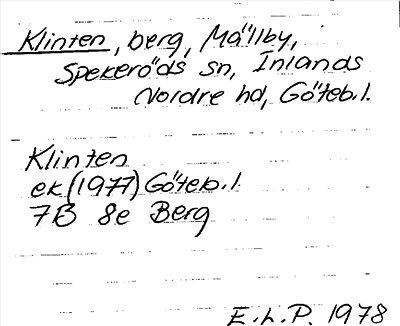 Klinten, berg, Mällby,
Spekeröds sn, Inlands
Nordre hd, Göteb.l.
Klinten
ek (1977) Göteb.l.
7B 8e Berg
E.L.P. 1978